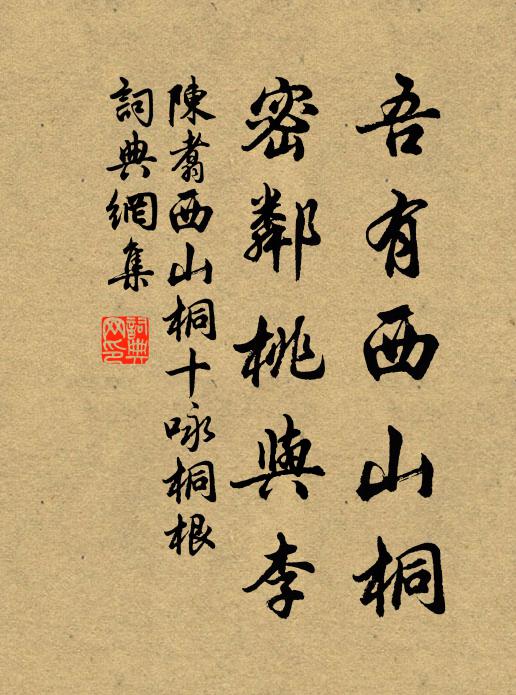 吾有西山桐
密鄰桃與李
陳翥西山桐十咏桐根
詞典網集
詞典
网印